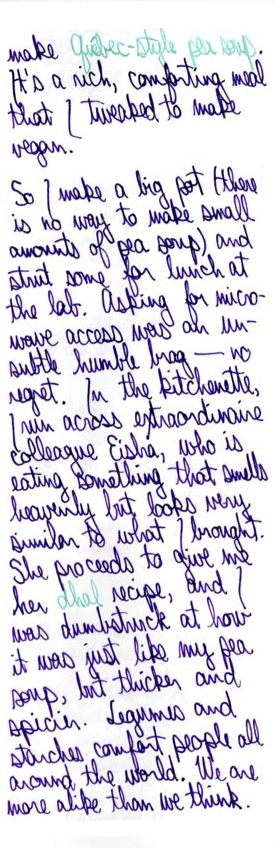 make Québec-style pea soup.
It's a rich, comforting meal
that I tweaked to make
vegan.
So I make a big pot (there
is no way to make small
amounts of pea soup) and
strut some for lunch at
the lab. Asking for micro-
wave access was an un-
subtle humble brag — no
regret. In the kitchenette,
I run across extraordinaire
colleague Eisha, who is
eating something that smells
heavenly but looks very
similar to what I brought.
She proceeds to give me
her dhal recipe, and I
was dumbstruck at how
it was just like my pea
soup, but thicker and
spicier. Legumes and
starches comfort people all
around the world. We are
more alike than we think.